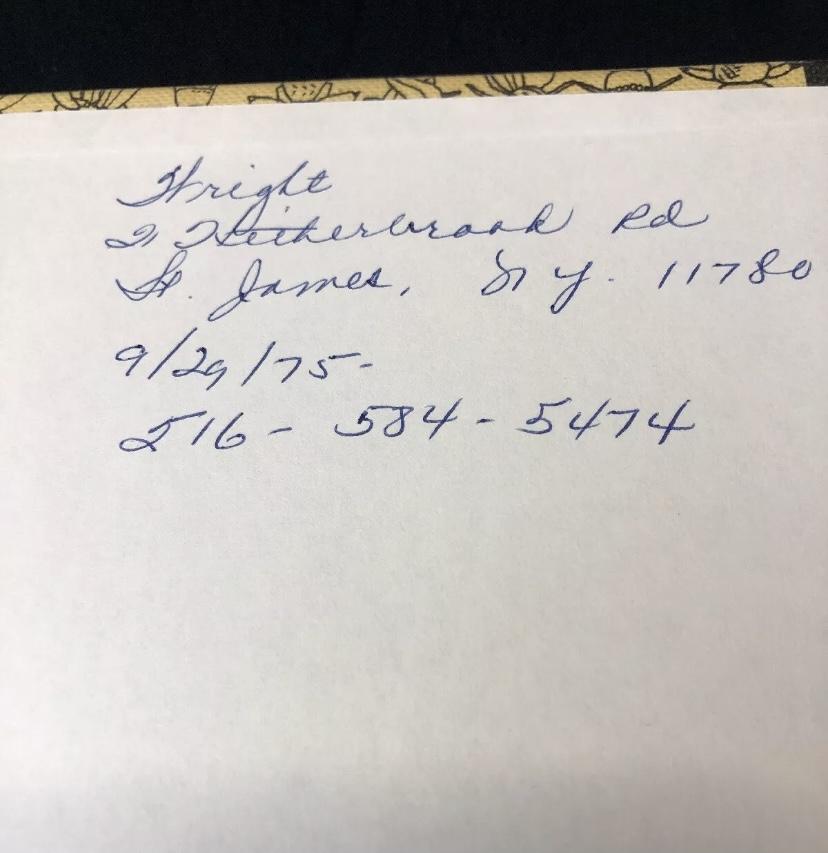 Wright
21 Hitherbrook Rd
St. James, NY. 11780
9/29/75-
516 - 584 - 5474